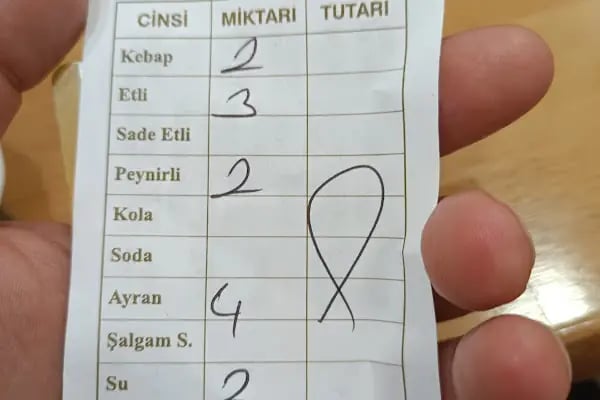 CİNSİ MİKTARI TUTARI
Kebap 2
Etli 3
Sade Etli
Peynirli 2
Kola
Soda
Ayran 4
Şalgam S.
Su 2